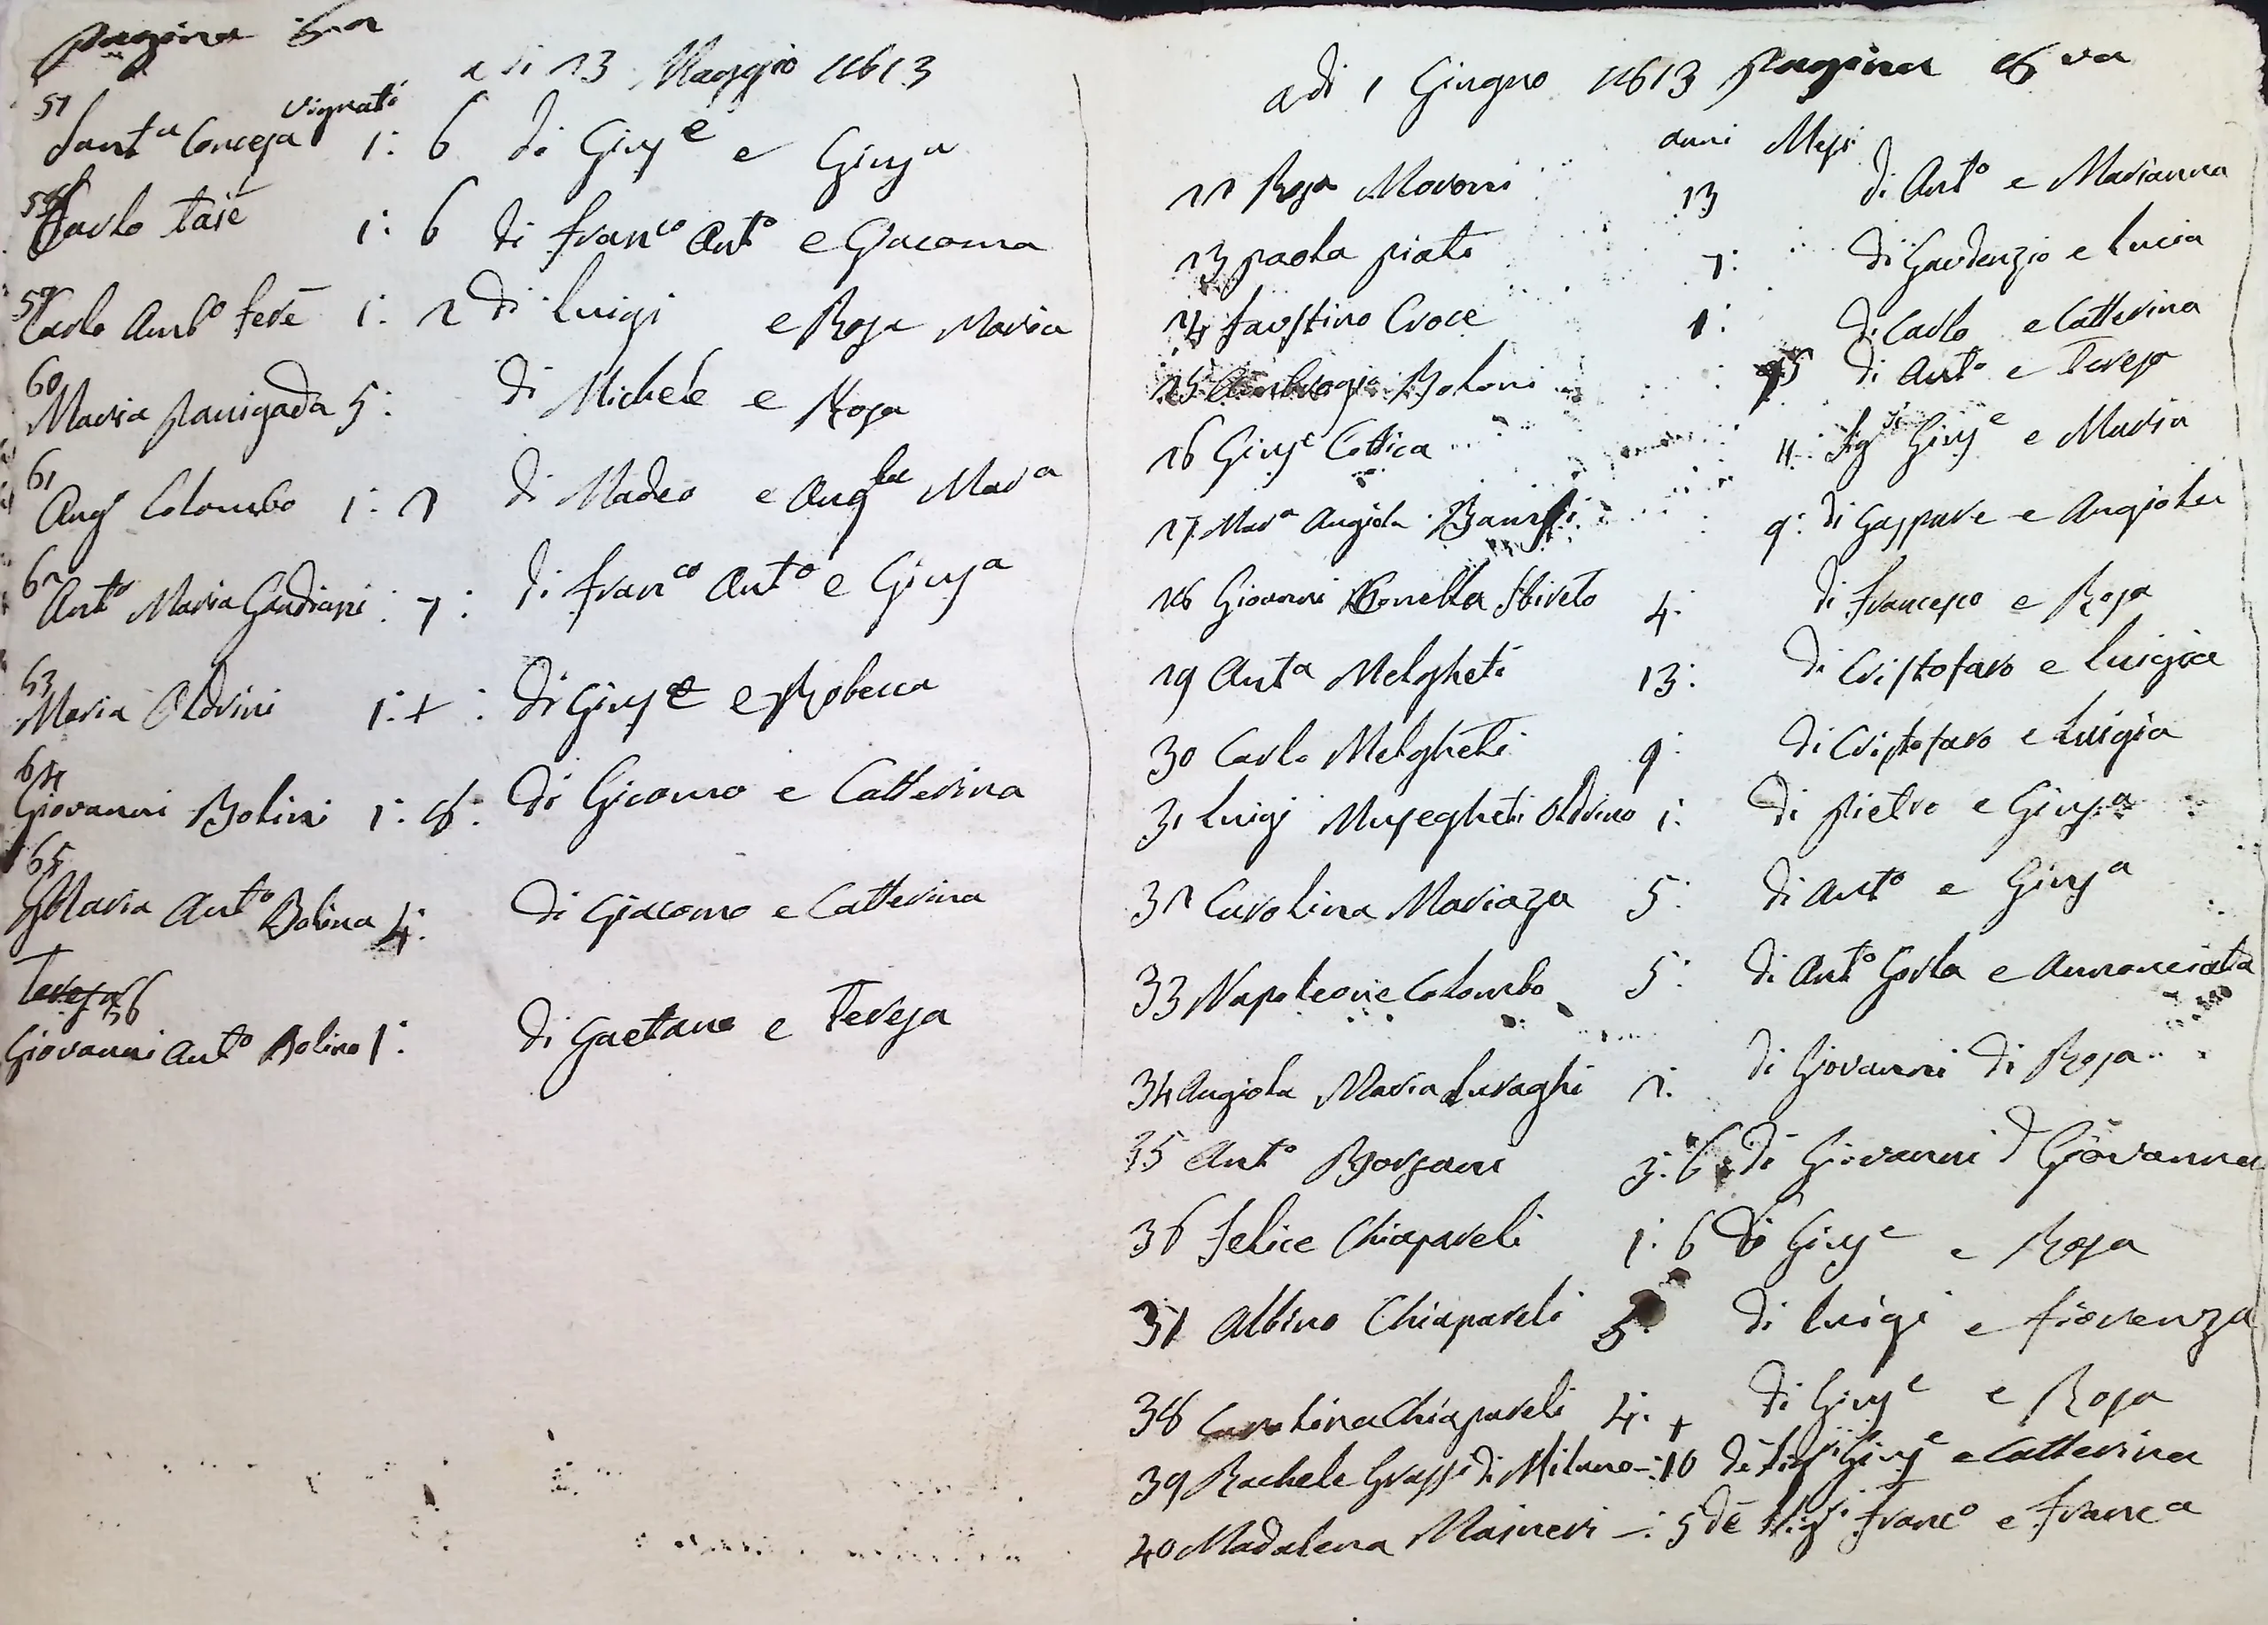 pagina 6a
a di 23 Maggio 1813
57
Vignati
Santa Concesa 1: 6 di Giuse e Giusa
58
Carlo Tase 1: 6 di Franco Anto e Giacoma
59
Carlo Ambo Fere 1: 2 di Luigi e Rosa Maria
60
Maria Panigada 5: di Michele e Rosa
61
Ang Colombo 1: 2 di Madeo e Angla Mara
62
Anto Maria Gaudiani : 7 : di Franco Anto e Giusa
63
Maria Oldrini 1: + : di Giuse e Robecca
64
Giovanni Bolini 1: 8: di Gicomo e Catterina
65
Maria Anto Bolina 4: di Giacomo e Catterina
Teresa 66
Giovanni Anto Bolino 1: di Gaetano e Teresa
adi 1 Giugno 1813 pagina 8va
anni Mesi
22 Rosa Moroni 13 di Anto e Marianna
23 paola piati 7: di Gaudenzio e Lucia
24 Faustino Croce 1: di Carlo e Catterina
25 Ambrogio Boloni 5 di Anto e Teresa
26 Giuse Cottica 11: Sigri Giuse e Maria
27 Mara Angiola 9: di Gaspare e Angiola
28 Giovanni Bonella Sbireto 4: di Francesco e Rosa
29 Anta Melgheti 13: di Cristofaro e Luigia
30 Carlo Melgheti 9: di Cristofaro e Luigia
31 Luigi Musegheti Oldrino 1: di pietro e Giusa
32 Carolina Mariaza 5: di Anto e Giusa
33 Napoleone Colombo 5: di Anto Gorla e Annonciata
34 Angiola Maria Luraghi 2: di Giovanni di Rosa
35 Anto Borsani 3: 6: di Giovanni d Giovanna
36 Felice Chiapareli 1: 6 di Giuse e Rosa
37 Albino Chiapareli 5: di Luigi e Fiorenza
38 Carolina Chiapareli 4: + di Giuse e Rosa
39 Rachele Grassi di Milano -: 10 de Sigri Giuse e Catterina
40 Madalena Maineri -: 5 de Sigri Franco e Franca